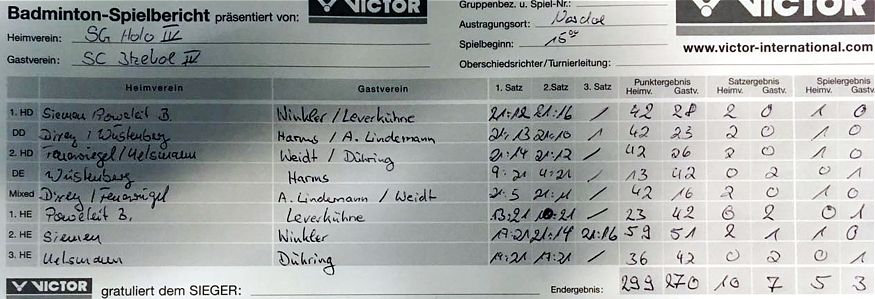 Badminton-Spielbericht präsentiert von: VICTOR Gruppenbez. u. Spiel-Nr.: VICTOR
Heimverein: SG Holo IV Austragungsort:
Gastverein: SC Itzehoe IV Spielbeginn: 15⁰⁰ www.victor-international.com
Oberschiedsrichter/Turnierleitung:
Heimverein Gastverein 1. Satz 2.Satz 3. Satz Punktergebnis Satzergebnis Spielergebnis
Heimv. Gastv. Heimv. Gastv. Heimv. Gastv.
1. HD Siemen Poweleit B. Winkler / Leverkühne 21:12 21:16 / 42 28 2 0 1 0
DD / Wüstenberg Harms / A. Lindemann 21:13 21:10 1 42 23 2 0 1 0
2. HD Feuerriegel / Uelsmann Weidt / Dühring 21:14 21:12 / 42 26 2 0 1 0
DE Wüstenberg Harms 9:21 4:21 / 13 42 0 2 0 1
Mixed / Feuerriegel A. Lindemann / Weidt 21:5 21:11 / 42 16 2 0 1 0
1. HE Poweleit B. Leverkühne 13:21 10:21 / 23 42 0 2 0 1
2. HE Siemen Winkler 17:21 21:14 21:16 59 51 2 1 1 0
3. HE Uelsmann Dühring 19:21 17:21 / 36 42 0 2 0 1
VICTOR gratuliert dem SIEGER: Endergebnis: 299 270 10 7 5 3